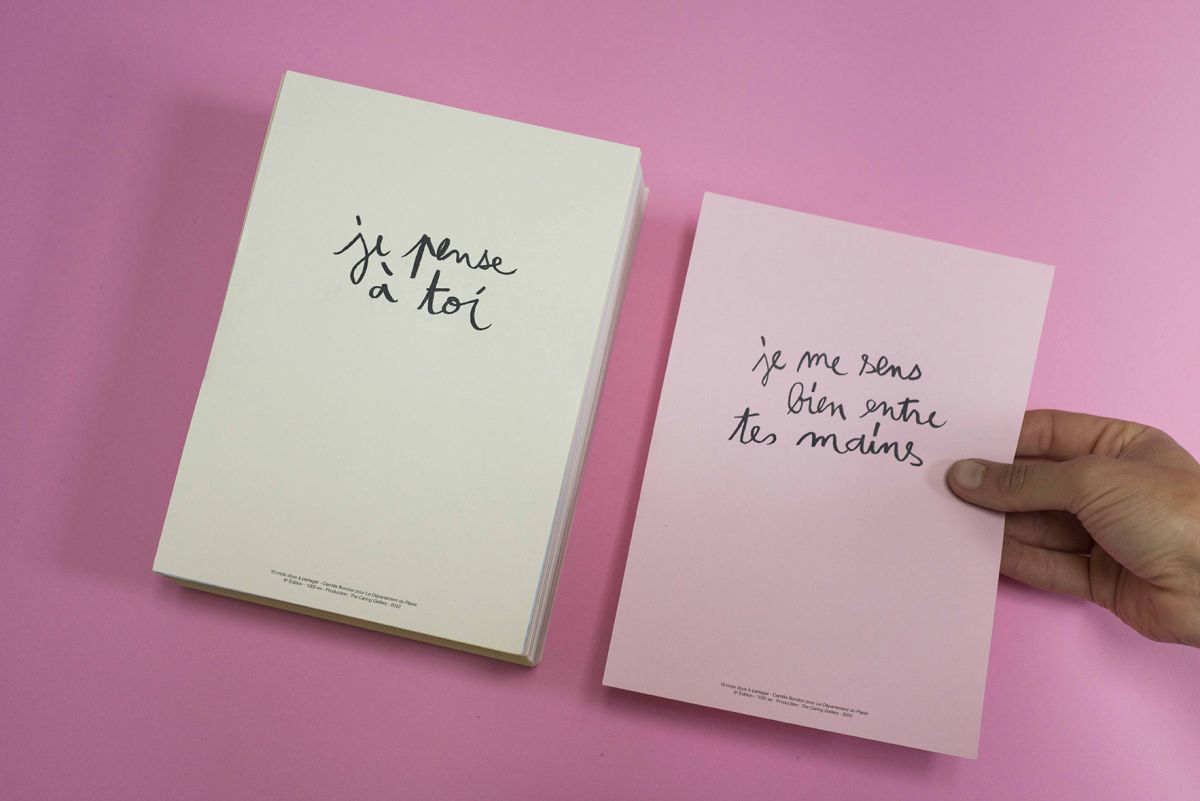 je pense
à toi
10 mots doux à partager - Camille Bondon pour Le Département du Plaisir
6e Édition - 1000 ex - Production : The Caring Gallery - 2022
je me sens
bien entre
tes mains
10 mots doux à partager - Camille Bondon pour Le Département du Plaisir
6e Édition - 1000 ex - Production : The Caring Gallery - 2022